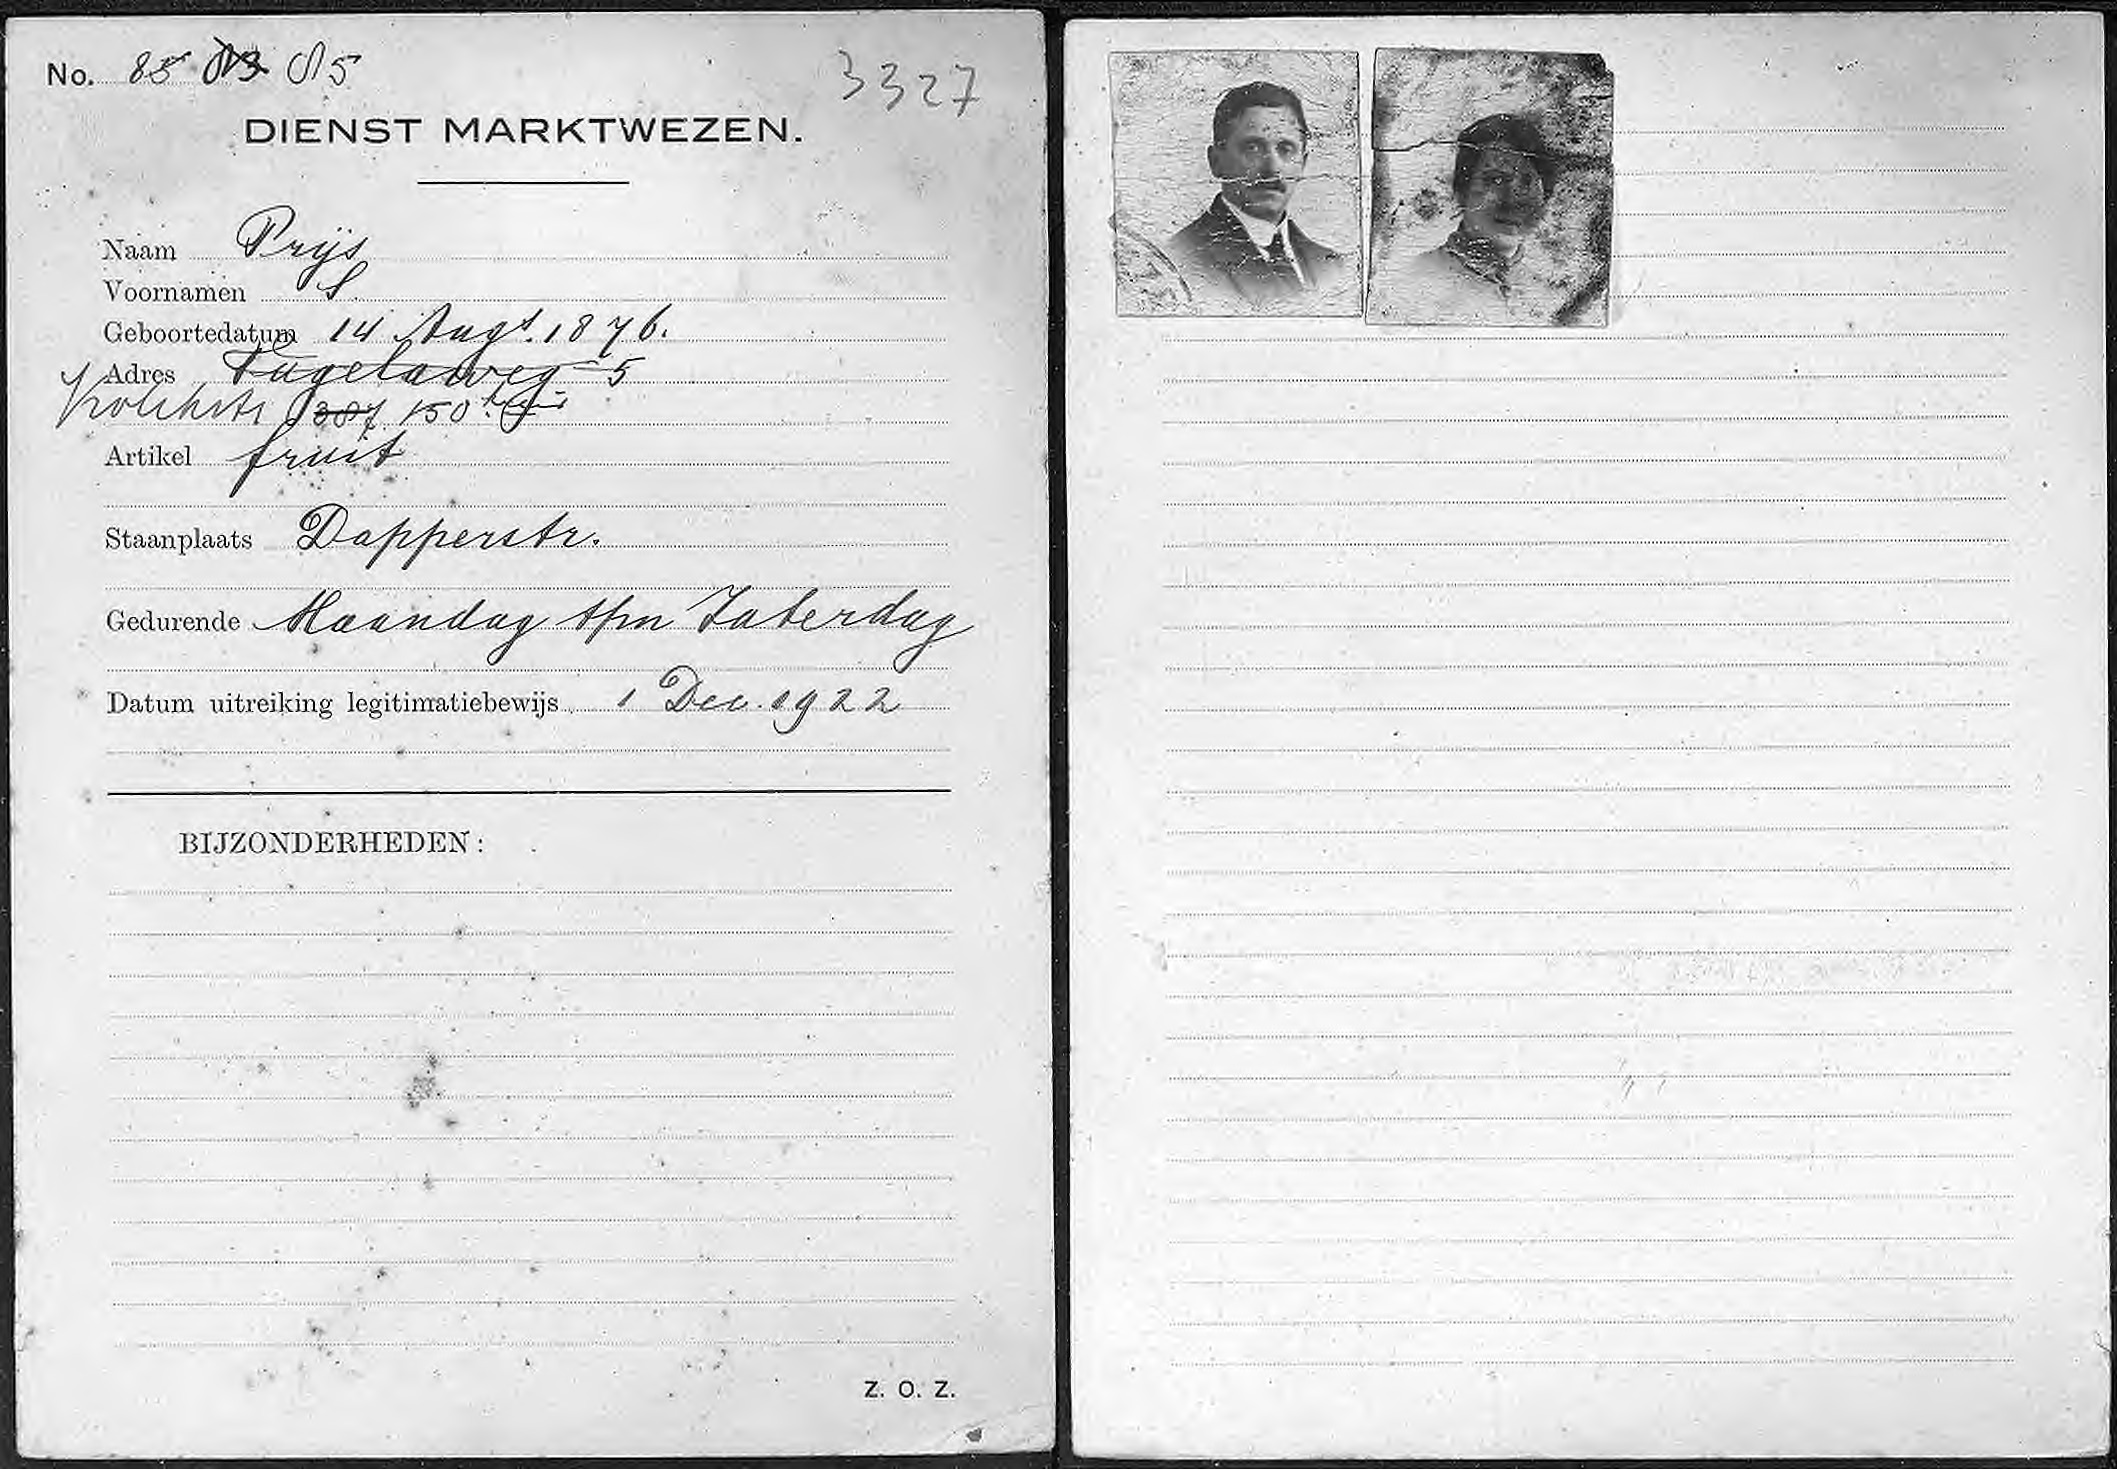 No. 85 83 85
3327
DIENST MARKTWEZEN.
Naam Prijs
Voornamen S.
Geboortedatum 14 Augt. 1876.
Adres Tugelaweg 5
150
Artikel fruit
Staanplaats Dapperstr.
Gedurende Maandag t/m Zaterdag
Datum uitreiking legitimatiebewijs 1 Dec. 1922
BIJZONDERHEDEN:
Z. O. Z.